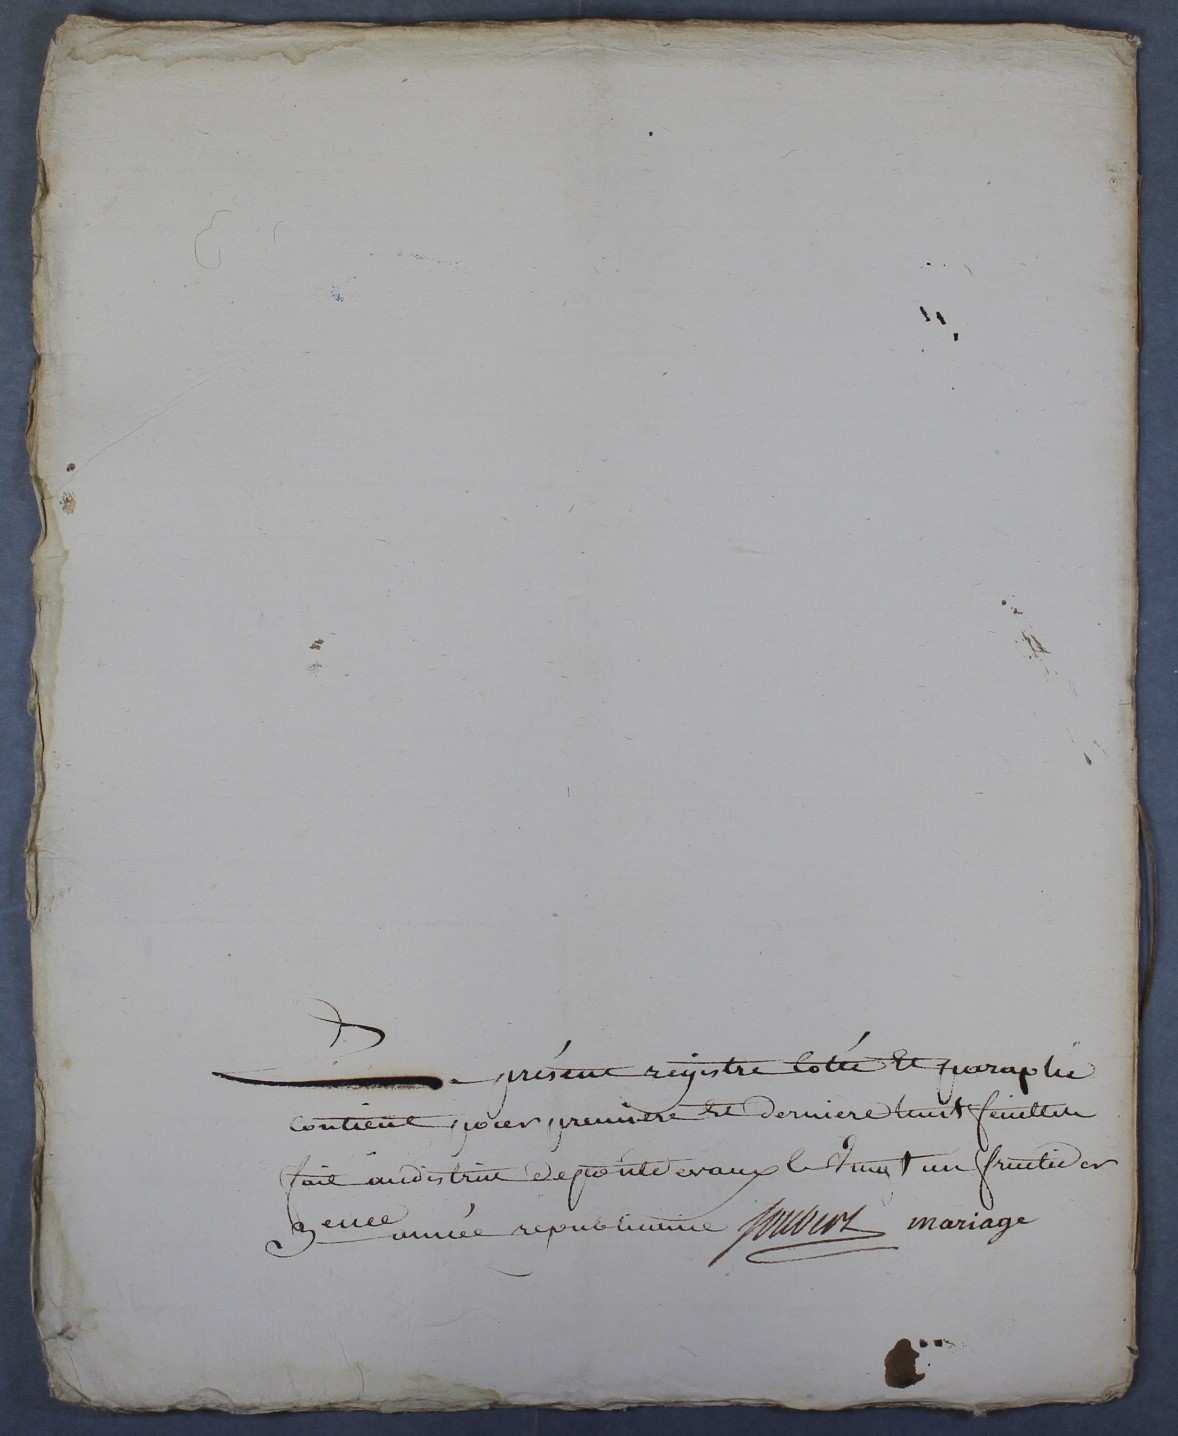 Le présent registre cotée Et paraphé
contient pour premiere Et derniere huit feuillets
fait au district de pontdevaux le vingt un fructidor
3eme année republicaine Joubert mariage